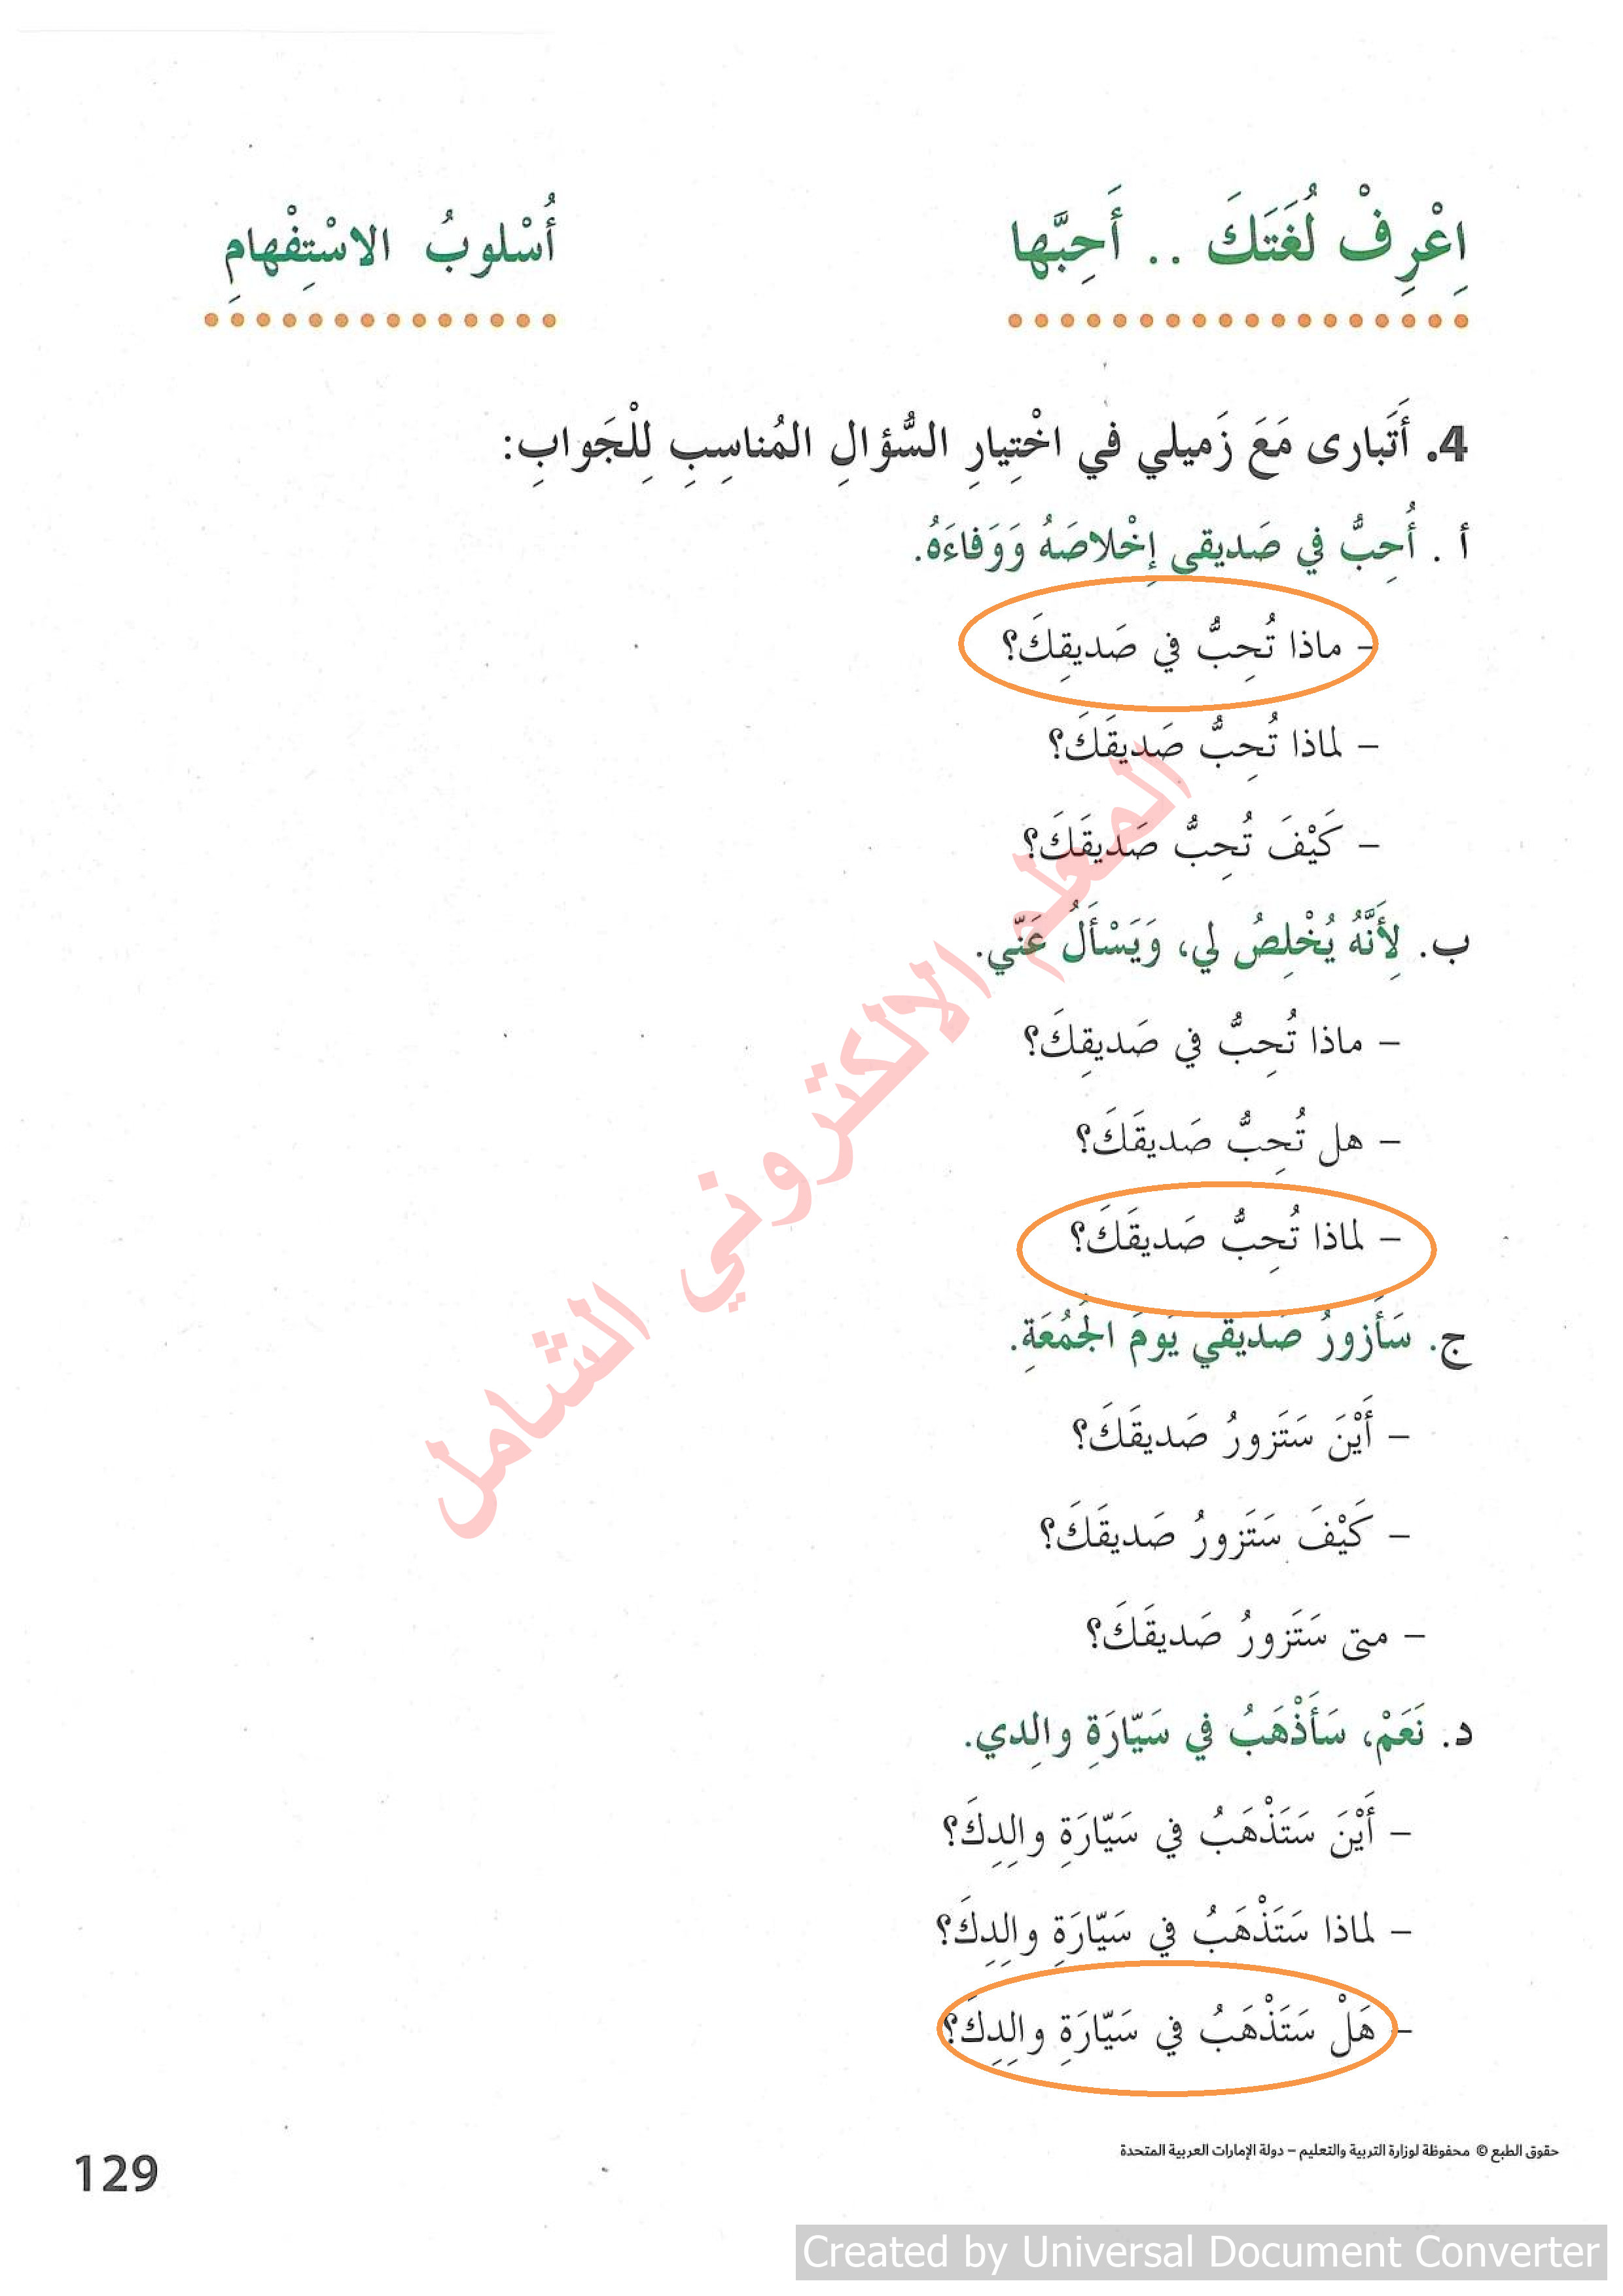 اِعْرِفْ لُغَتَكَ .. أَحِبَّها
أُسْلوبُ الاسْتِفْهامِ
4. أَتَبارى مَعَ زَميلي في اخْتِيارِ السُّؤالِ المُناسِبِ لِلْجَوابِ:
أ . أُحِبُّ في صَديقي إِخْلاصَهُ وَوَفاءَهُ.
– ماذا تُحِبُّ في صَديقِكَ؟
– لماذا تُحِبُّ صَديقَكَ؟
– كَيْفَ تُحِبُّ صَديقَكَ؟
ب. لِأَنَّهُ يُخْلِصُ لي، وَيَسْأَلُ عَنّي.
– ماذا تُحِبُّ في صَديقِكَ؟
– هل تُحِبُّ صَديقَكَ؟
– لماذا تُحِبُّ صَديقَكَ؟
ج. سَأَزورُ صَديقي يَومَ الجُمُعَةِ.
– أَيْنَ سَتَزورُ صَديقَكَ؟
– كَيْفَ سَتَزورُ صَديقَكَ؟
– متى سَتَزورُ صَديقَكَ؟
د. نَعَمْ، سَأَذْهَبُ في سَيّارَةِ والِدي.
– أَيْنَ سَتَذْهَبُ في سَيّارَةِ والِدِكَ؟
– لماذا سَتَذْهَبُ في سَيّارَةِ والِدِكَ؟
– هَلْ سَتَذْهَبُ في سَيّارَةِ والِدِكَ؟
المعلم الالكتروني الشامل
حقوق الطبع © محفوظة لوزارة التربية والتعليم – دولة الإمارات العربية المتحدة
129
Created by Universal Document Converter